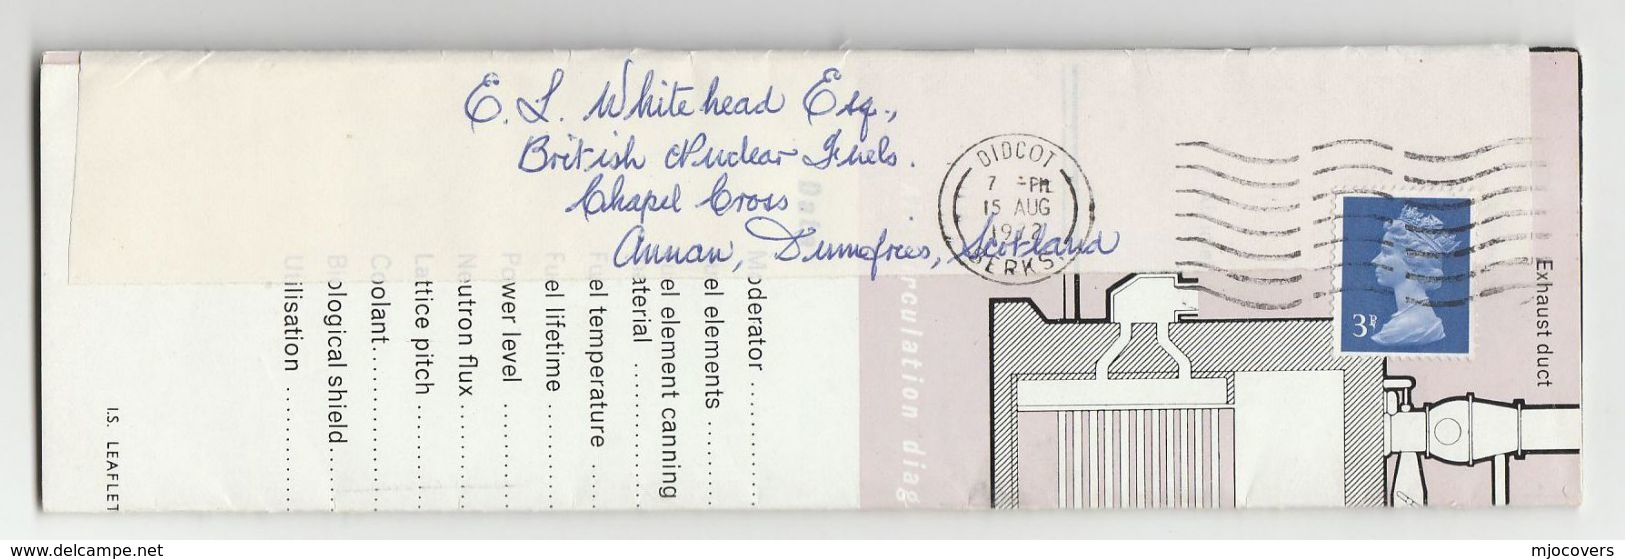 E. L. Whitehead Esq.,
British Nuclear Fuels.
Chapel Cross
Annan, Dumefries, Scotland
DIDCOT
7 - PM
15 AUG
1972
BERKS.
3P
Exhaust duct
Air circulation diag
Data
Moderator
Fuel elements
Fuel element canning
material
Fuel temperature
Fuel lifetime
Power level
Neutron flux
Lattice pitch
Coolant
Biological shield
Utilisation
I.S. LEAFLET
www.delcampe.net
mjocovers